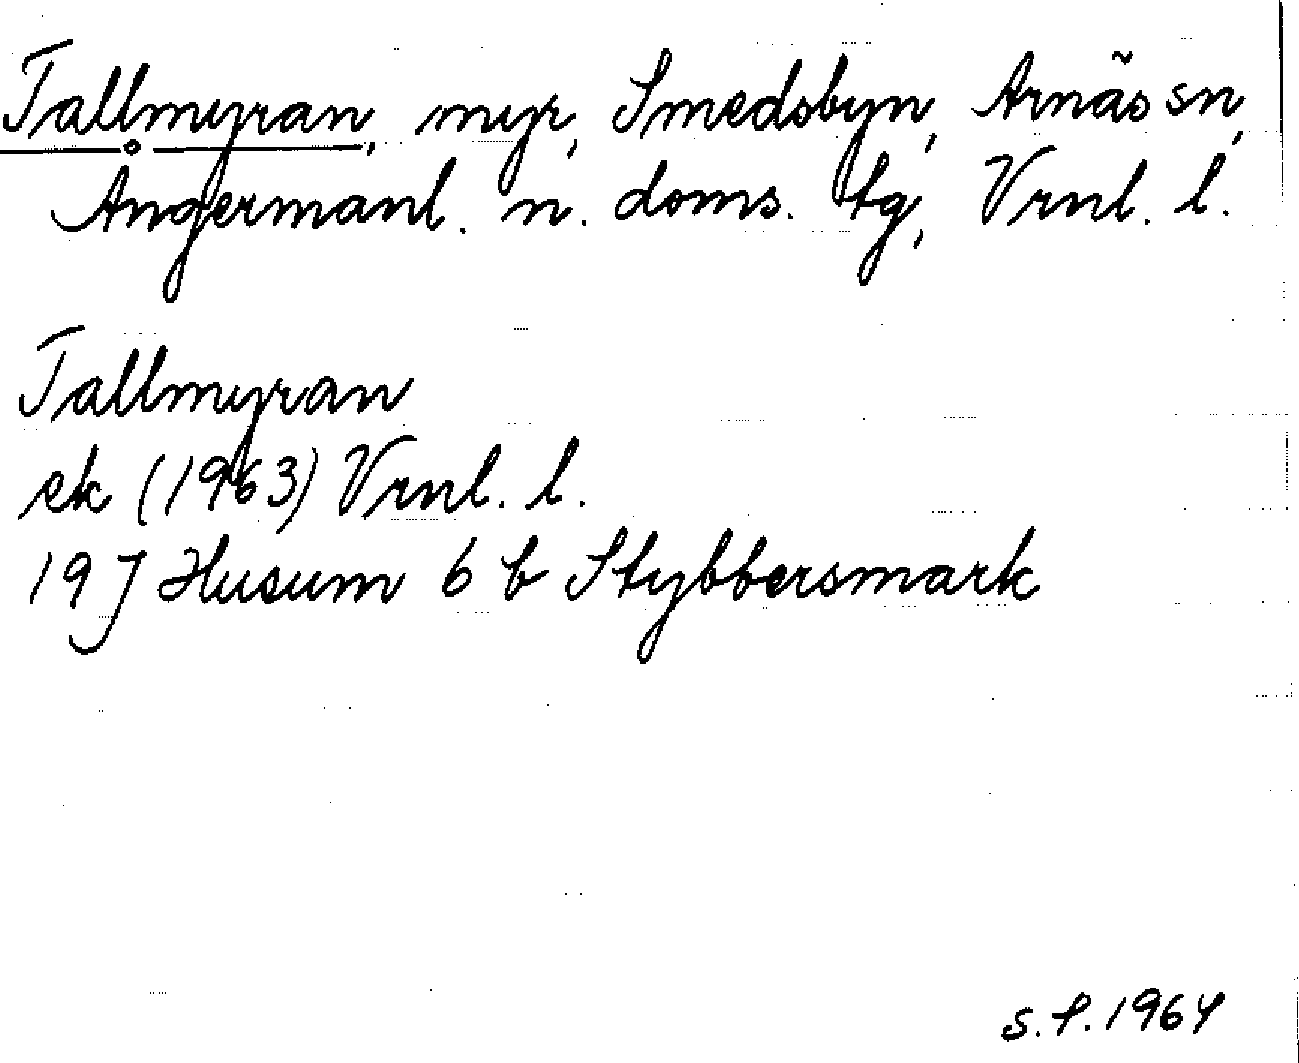 Tallmyran, myr, Smedsbyn, Arnäs sn,
Ångermanl. n. doms. tg, Vrnl. l.
Tallmyran
ek (1963) Vrnl. l.
19 J Husum 6 b Stybbersmark
S.F. 1964